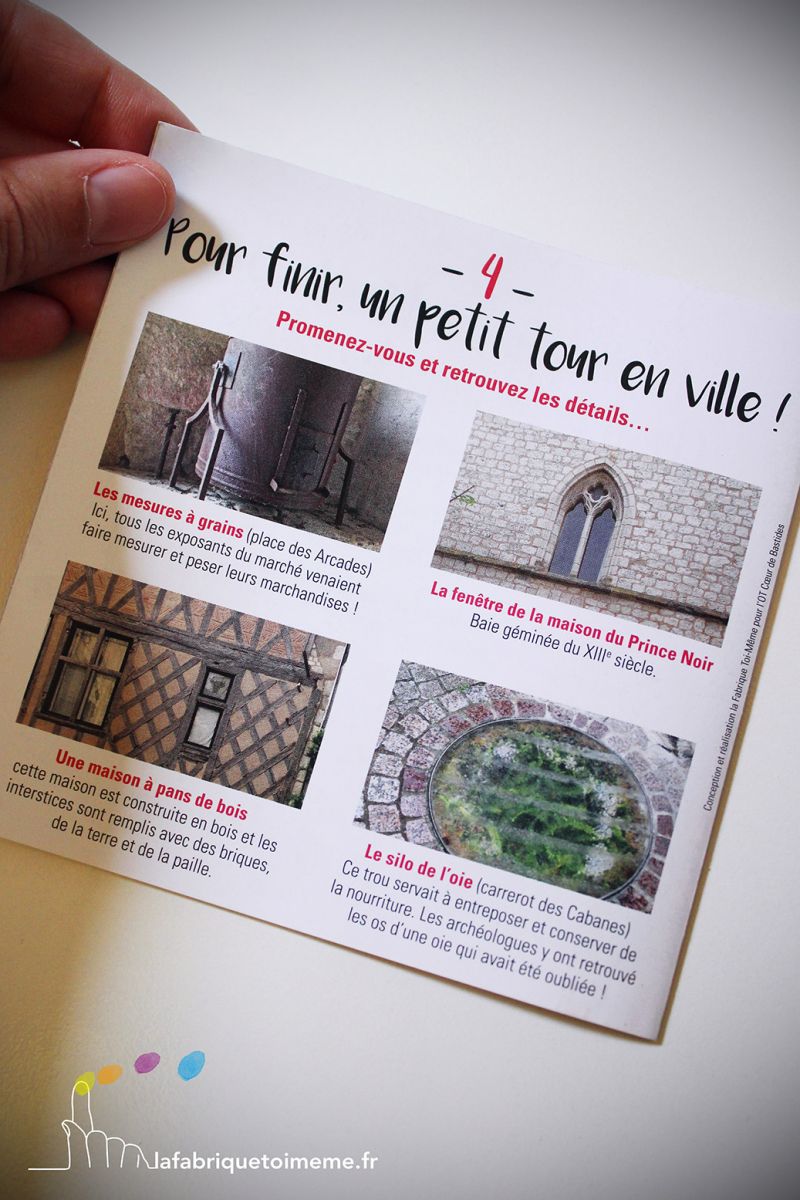 - 4 -
Pour finir, un petit tour en ville !
Promenez-vous et retrouvez les détails...
Les mesures à grains (place des Arcades)
Ici, tous les exposants du marché venaient
faire mesurer et peser leurs marchandises !
La fenêtre de la maison du Prince Noir
Baie géminée du XIIIe siècle.
Une maison à pans de bois
cette maison est construite en bois et les
interstices sont remplis avec des briques,
de la terre et de la paille.
Le silo de l'oie (carrerot des Cabanes)
Ce trou servait à entreposer et conserver de
la nourriture. Les archéologues y ont retrouvé
les os d'une oie qui avait été oubliée !
Conception et réalisation la Fabrique Toi-Même pour l'OT Cœur de Bastides
lafabriquetoimeme.fr